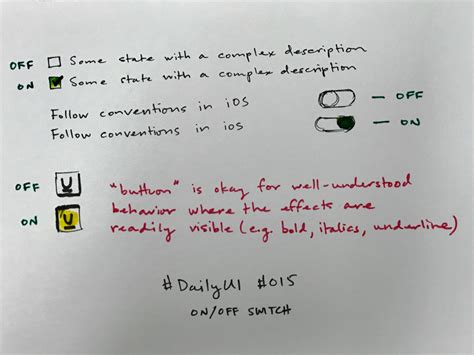 OFF Some state with a complex description
ON Some state with a complex description
Follow conventions in iOS — OFF
Follow conventions in ios — ON
OFF U "button" is okay for well-understood
ON U behavior where the effects are
readily visible (e.g. bold, italics, underline)
#DailyUI #015
ON/OFF SWITCH